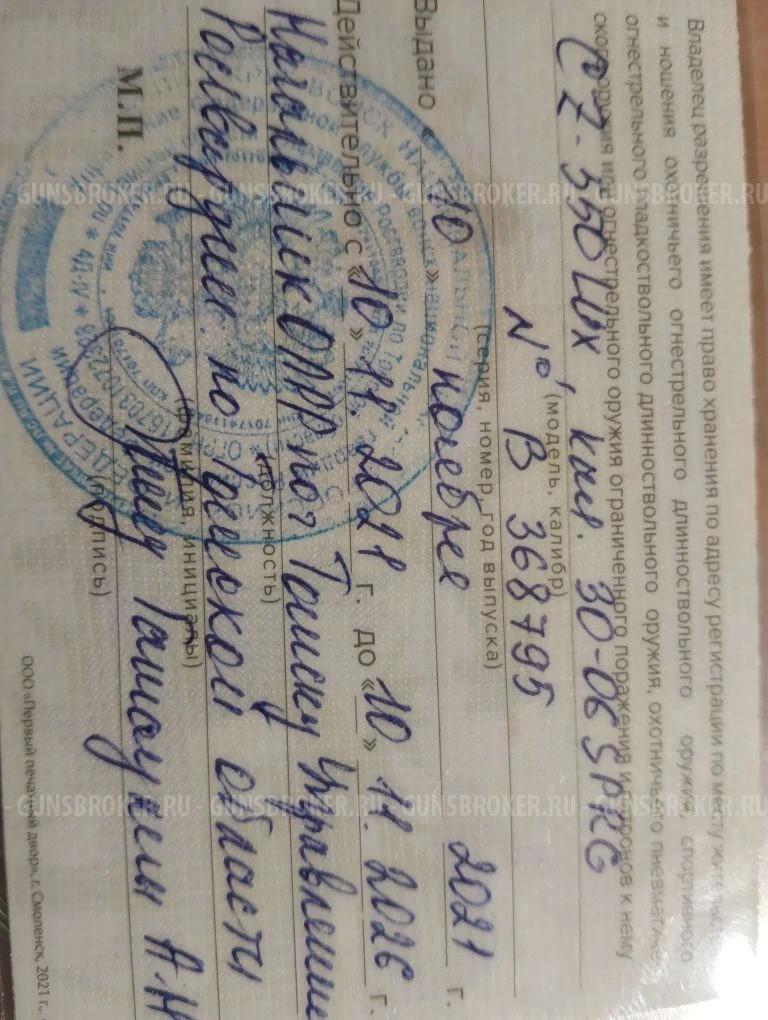 Владелец разрешения имеет право хранения по адресу регистрации по месту жительс
и ношения охотничьего огнестрельного длинноствольного оружия, спортивного
огнестрельного гладкоствольного длинноствольного оружия, охотничьего пневматиче
ского оружия или огнестрельного оружия ограниченного поражения и патронов к нему
CZ-550 Lux, кал. 30-06 SPRG
(модель, калибр)
№ В 368795
(серия, номер, год выпуска)
Выдано « 10 » ноября 2021 г.
Действительно с «10» 11 2021 г. до «10» 11. 2026 г.
Начальник ОЛРР по г Томску Управления
(должность)
Росгвардии по Томской области
(фамилия, инициалы)
А.Н
М.П. (подпись)
ООО «Первый печатный двор», г. Смоленск, 2021 г.,
GUNSBROKER.RU - GUNSBROKER.RU - GUNSBROKER.RU - GUNSBROKER.RU
GUNSBROKER.RU - GUNSBROKER.RU - GUNSBROKER.RU - GUNSBROKER.RU